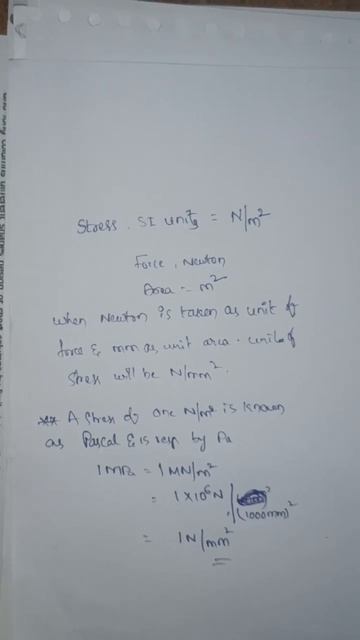 Stress. SI units = N/m²
Force, Newton
Area = m²
when Newton is taken as unit of
force & mm as, unit area. units of
stress will be N/mm².
** A stress of one N/m² is known
as Pascal & is rep by Pa
1MPa = 1MN/m²
= 1×10⁶N/(1000mm)²
= 1N/mm²